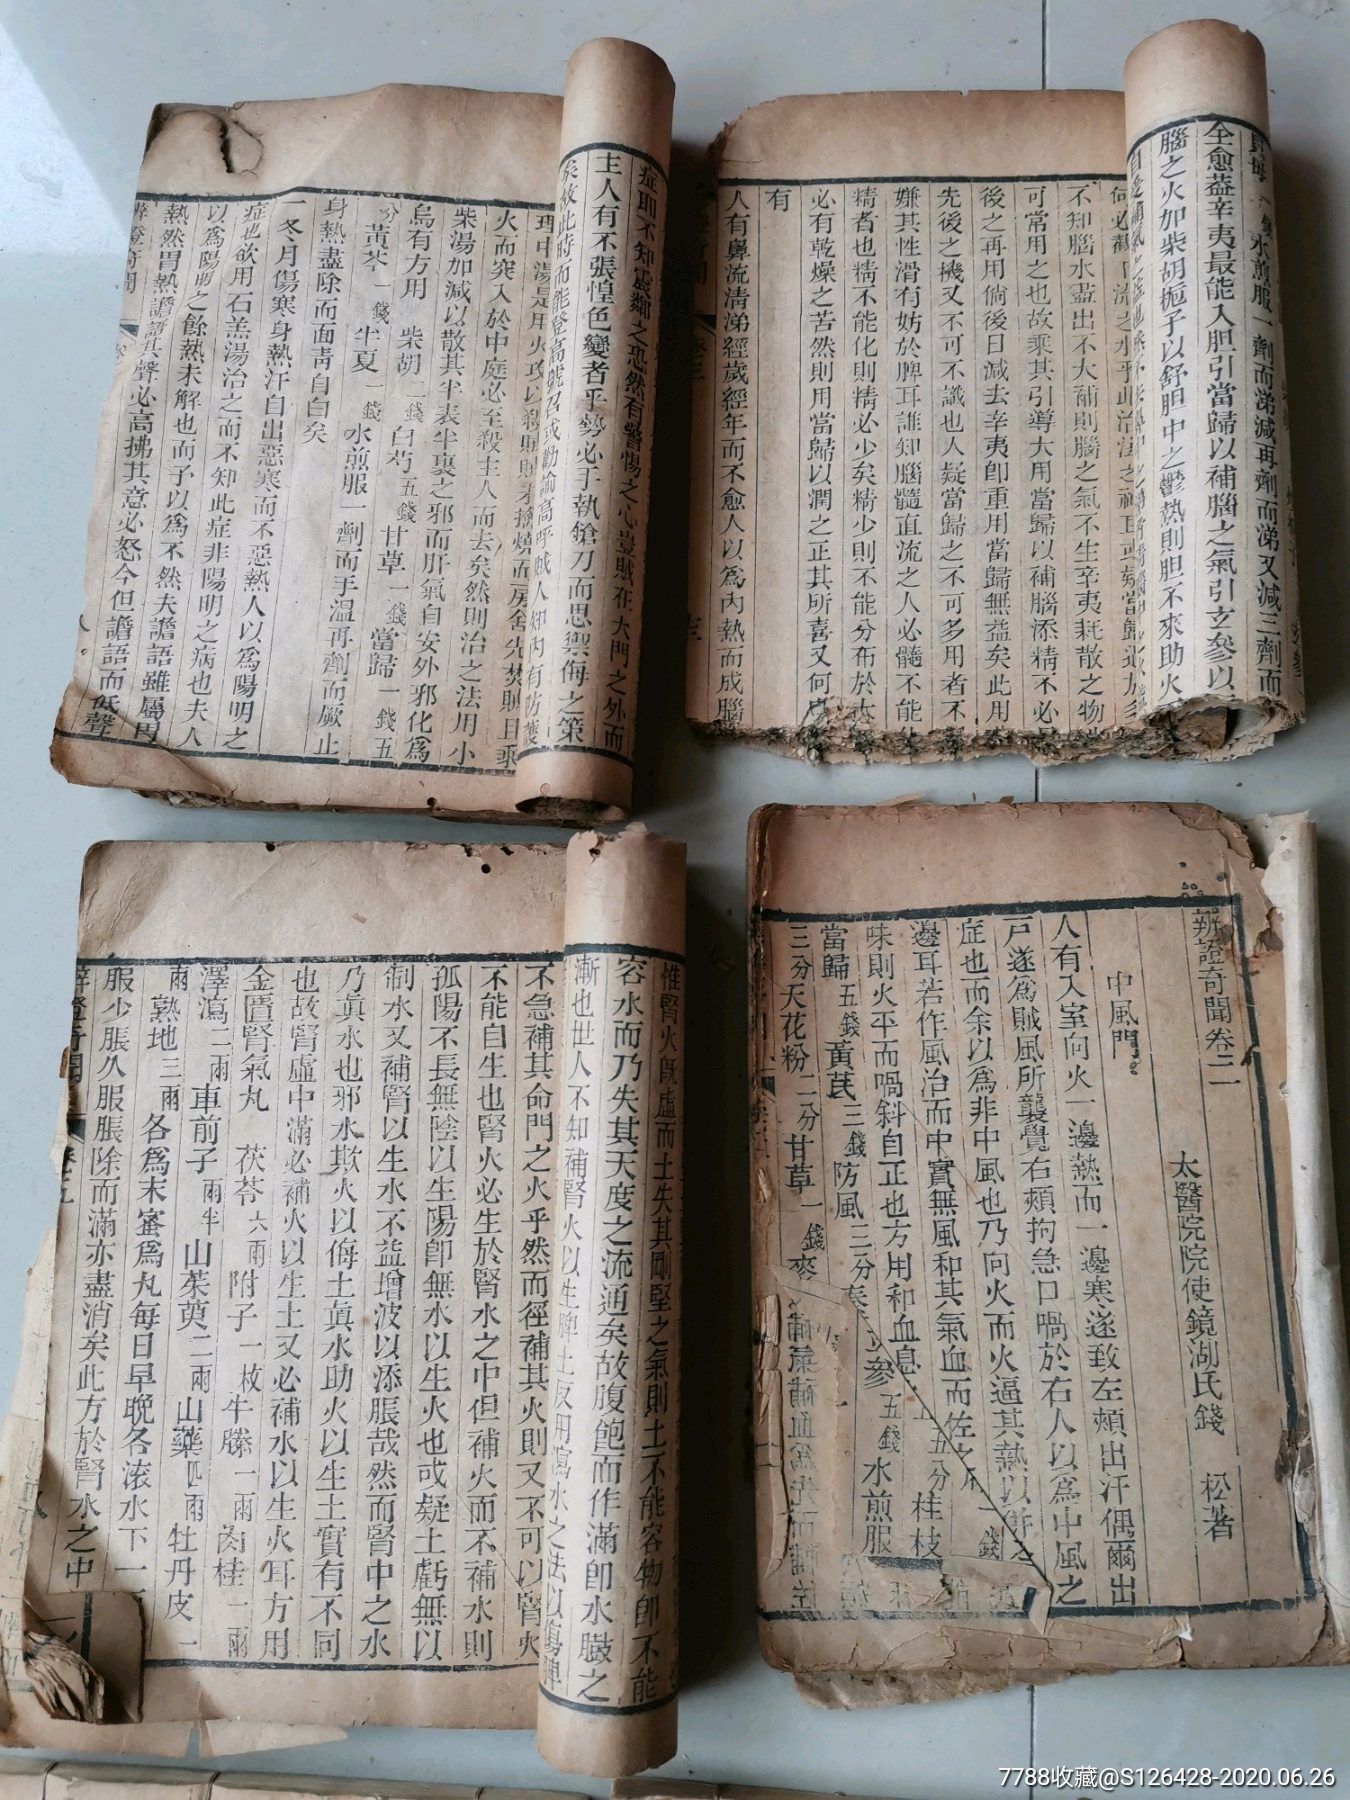 症耶不知震鄰之恐然有警惕之心豈賊在大門之外而
主人有不張惶色變者乎勢必手執鎗刀而思禦侮之策
矣故此時而能登高號召或勸諭高呼賊人知內有防護
火而突入於中庭必至殺主人而去矣然則治之法用小
柴湯加減以散其半表半裏之邪而肝氣自安外邪化為
烏有方用 柴胡二錢白芍五錢甘草一錢當歸一錢五
分黃芩一錢半夏一錢水煎服一劑而手溫再劑而厥止
身熱盡除而面靑自白矣
一冬月傷寒身熱汗自出惡寒而不惡熱人以為陽明之
症也欲用石羔湯治之而不知此症非陽明之病也夫人
以為陽明之餘熱未解也而予以為不然夫譫語雖屬胃
熱然胃熱譫語其聲必高拂其意必怒今但譫語而低聲
水煎服一劑而涕減再劑而涕又減三劑而
全愈葢辛夷最能入胆引當歸以補腦之氣引玄參以
腦之火加柴胡梔子以舒胆中之鬱熱則胆不來助火
不知腦水盡出不大補則腦之氣不生辛夷耗散之物
可常用之也故乘其引導大用當歸以補腦添精不必
後之再用倘後日減去辛夷卽重用當歸無益矣此用
先後之機又不可不識也人疑當歸之不可多用者不
嫌其性滑有妨於脾耳誰知腦髓直流之人必髓不能
精者也精不能化則精必少矣精少則不能分布於大
必有乾燥之苦然則用當歸以潤之正其所喜又何
有
人有鼻流清涕經歲經年而不愈人以為內熱而成腦
惟腎火旣虛而土失其剛堅之氣則土不能容物卽不能
容水而乃失其天度之流通矣故腹飽而作滿卽水臌之
漸也世人不知補腎火以生脾土反用瀉水之法以傷脾
不急補其命門之火乎然而徑補其火則又不可以腎火
不能自生也腎火必生於腎水之中但補火而不補水則
孤陽不長無陰以生陽卽無水以生火也或疑土虧無以
制水又補腎以生水不益增波以添脹哉然而腎中之水
乃眞水也邪水欺火以侮土眞水助火以生土實有不同
也故腎虛中滿必補火以生土又必補水以生火耳方用
金匱腎氣丸 茯苓六兩附子一枚牛膝一兩肉桂一兩
澤瀉二兩車前子兩半山茱萸二兩山藥四兩牡丹皮一
兩熟地三兩 各為末蜜為丸每日早晚各滚水下一
服少脹久服脹除而滿亦盡消矣此方於腎水之中
辨證奇聞卷二
太醫院院使鏡湖氏錢 松著
中風門
人有入室向火一邊熱而一邊寒遂致左頰出汗偶爾出
戸遂為賊風所襲覺右頰拘急口喎於右人以為中風之
症也而余以為非中風也乃向火而火逼其熱以
邊耳若作風治而中實無風和其氣血而佐之
味則火平而喎斜自正也方用和血息
當歸五錢黃芪三錢防風三分 參五錢水煎服
三分天花粉二分甘草一錢
五分桂枝
7788收藏@S126428-2020.06.26